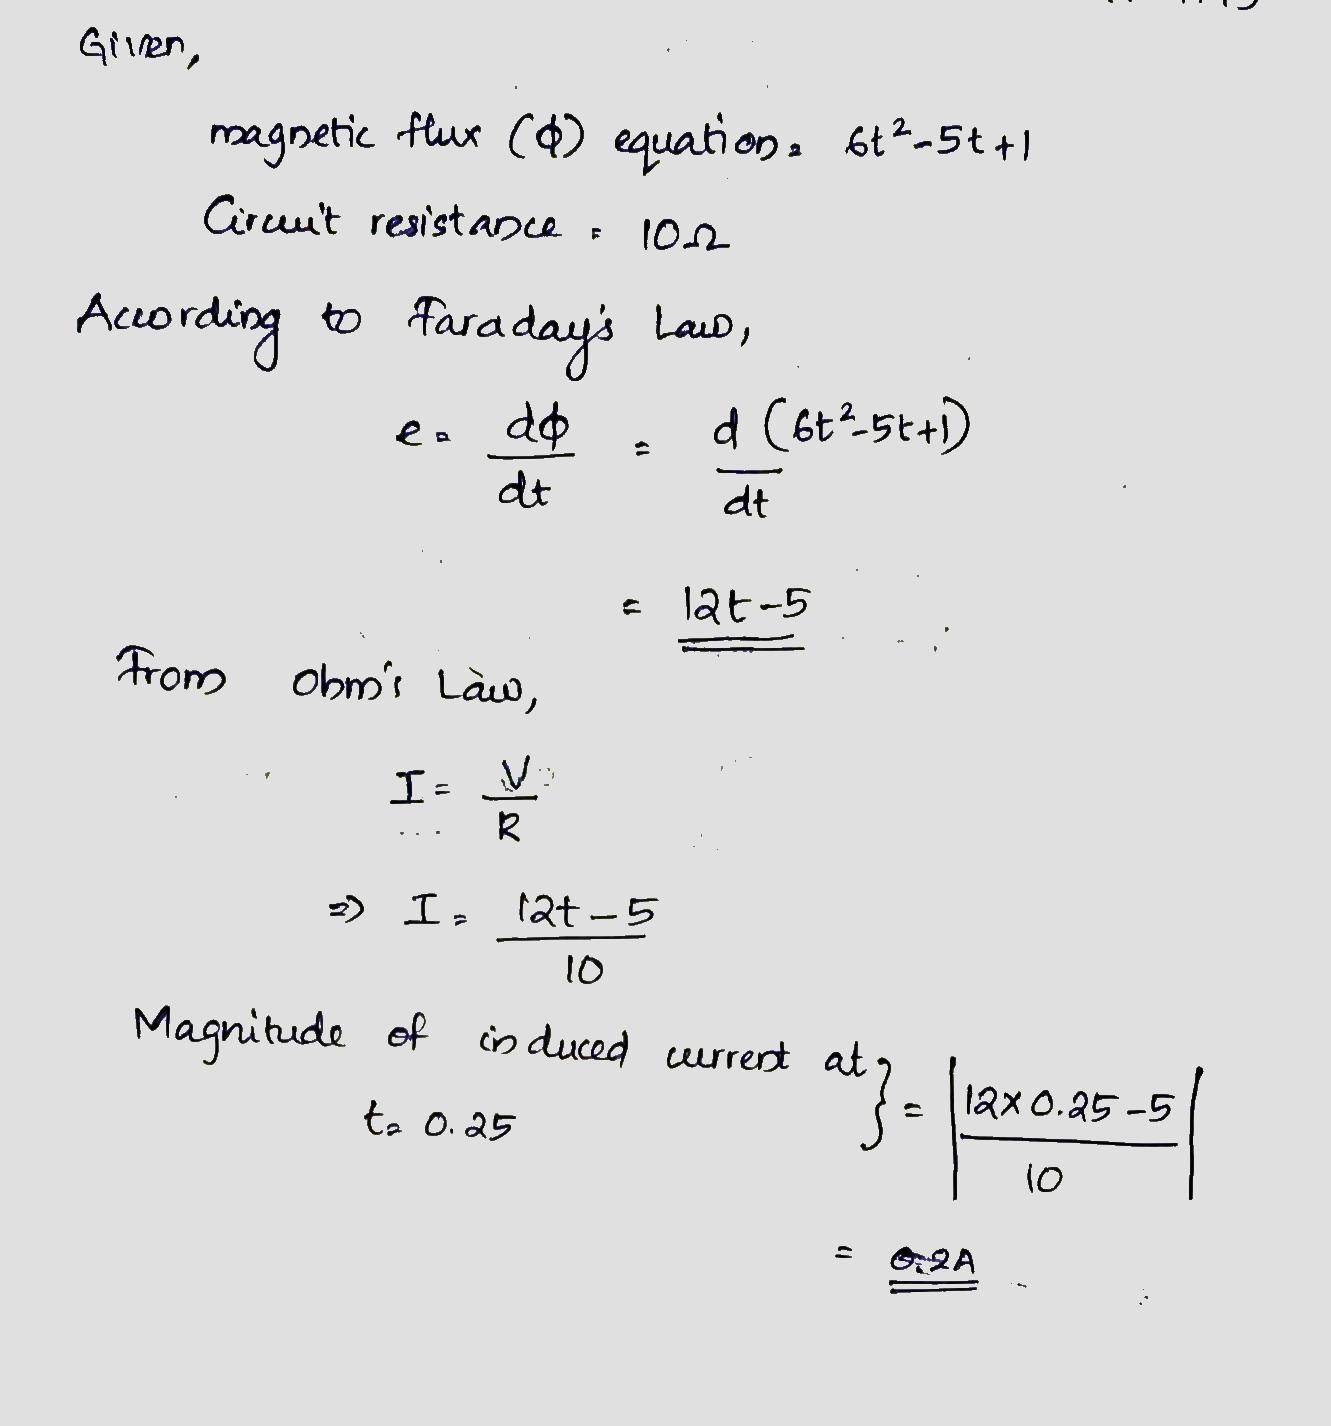 Given,
magnetic flux (ϕ) equation = 6t²-5t+1
Circuit resistance = 10Ω
According to Faraday's Law,
e = dϕ/dt = d(6t²-5t+1)/dt
= 12t-5
From Ohm's Law,
I = V/R
⇒ I = 12t-5/10
Magnitude of induced current at t = 0.25 } = |12×0.25-5/10|
= 0.2A